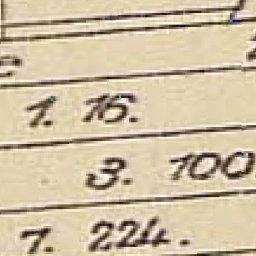 1. 16.
3. 100
7. 224.